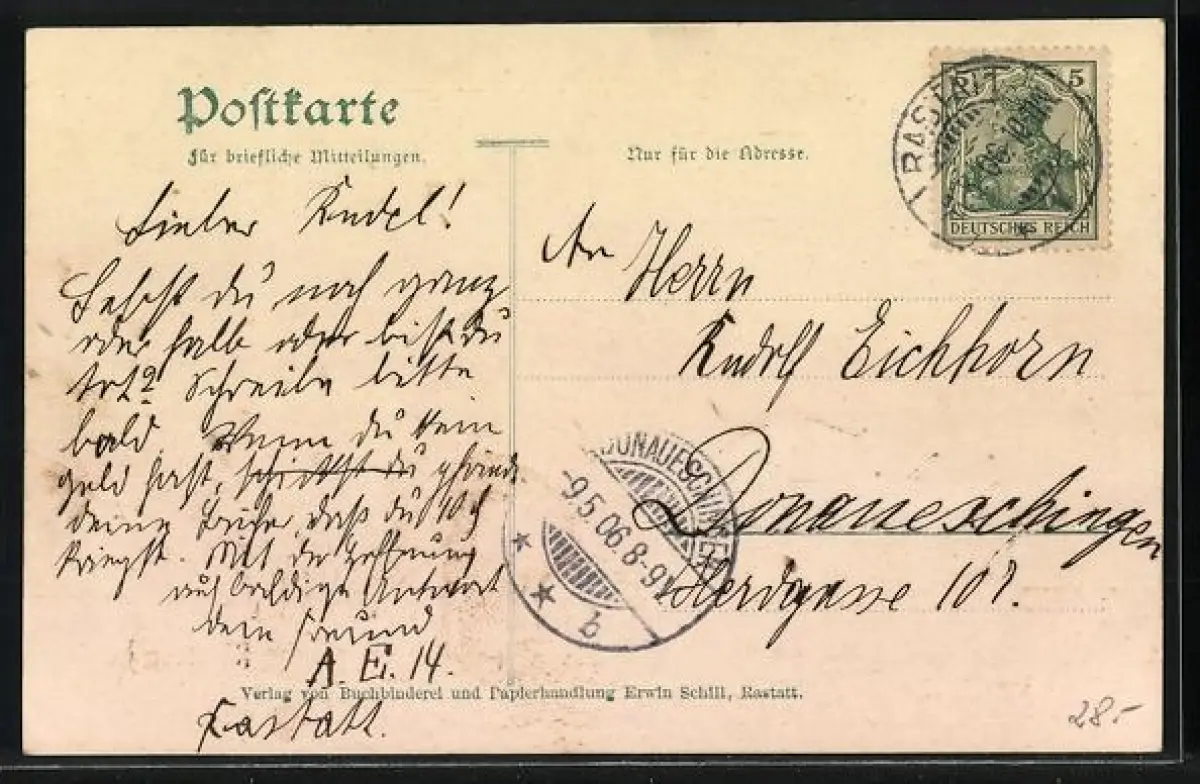 Postkarte
Für briefliche Mitteilungen.
Nur für die Adresse.
5 5
DEUTSCHES REICH
RASTATT
Lieber Rudel!
Lebst du noch ganz
oder halb oder bist du
tot? Schreibe bitte
bald. Wenn du kein
geld hast, schickst du pfände
deine Bücher, daß du 10 ₰
kriegst. Mit der Hoffnung
auf baldige Antwort
dein Freund
A. E. 14.
Rastatt.
An Herrn
Rudolf Eichhorn
Donaueschingen
Herdgasse 107.
DONAUESCHINGEN
9.5.06. 8-9V.
b
Verlag von Buchbinderei und Papierhandlung Erwin Schill, Rastatt.
28.-